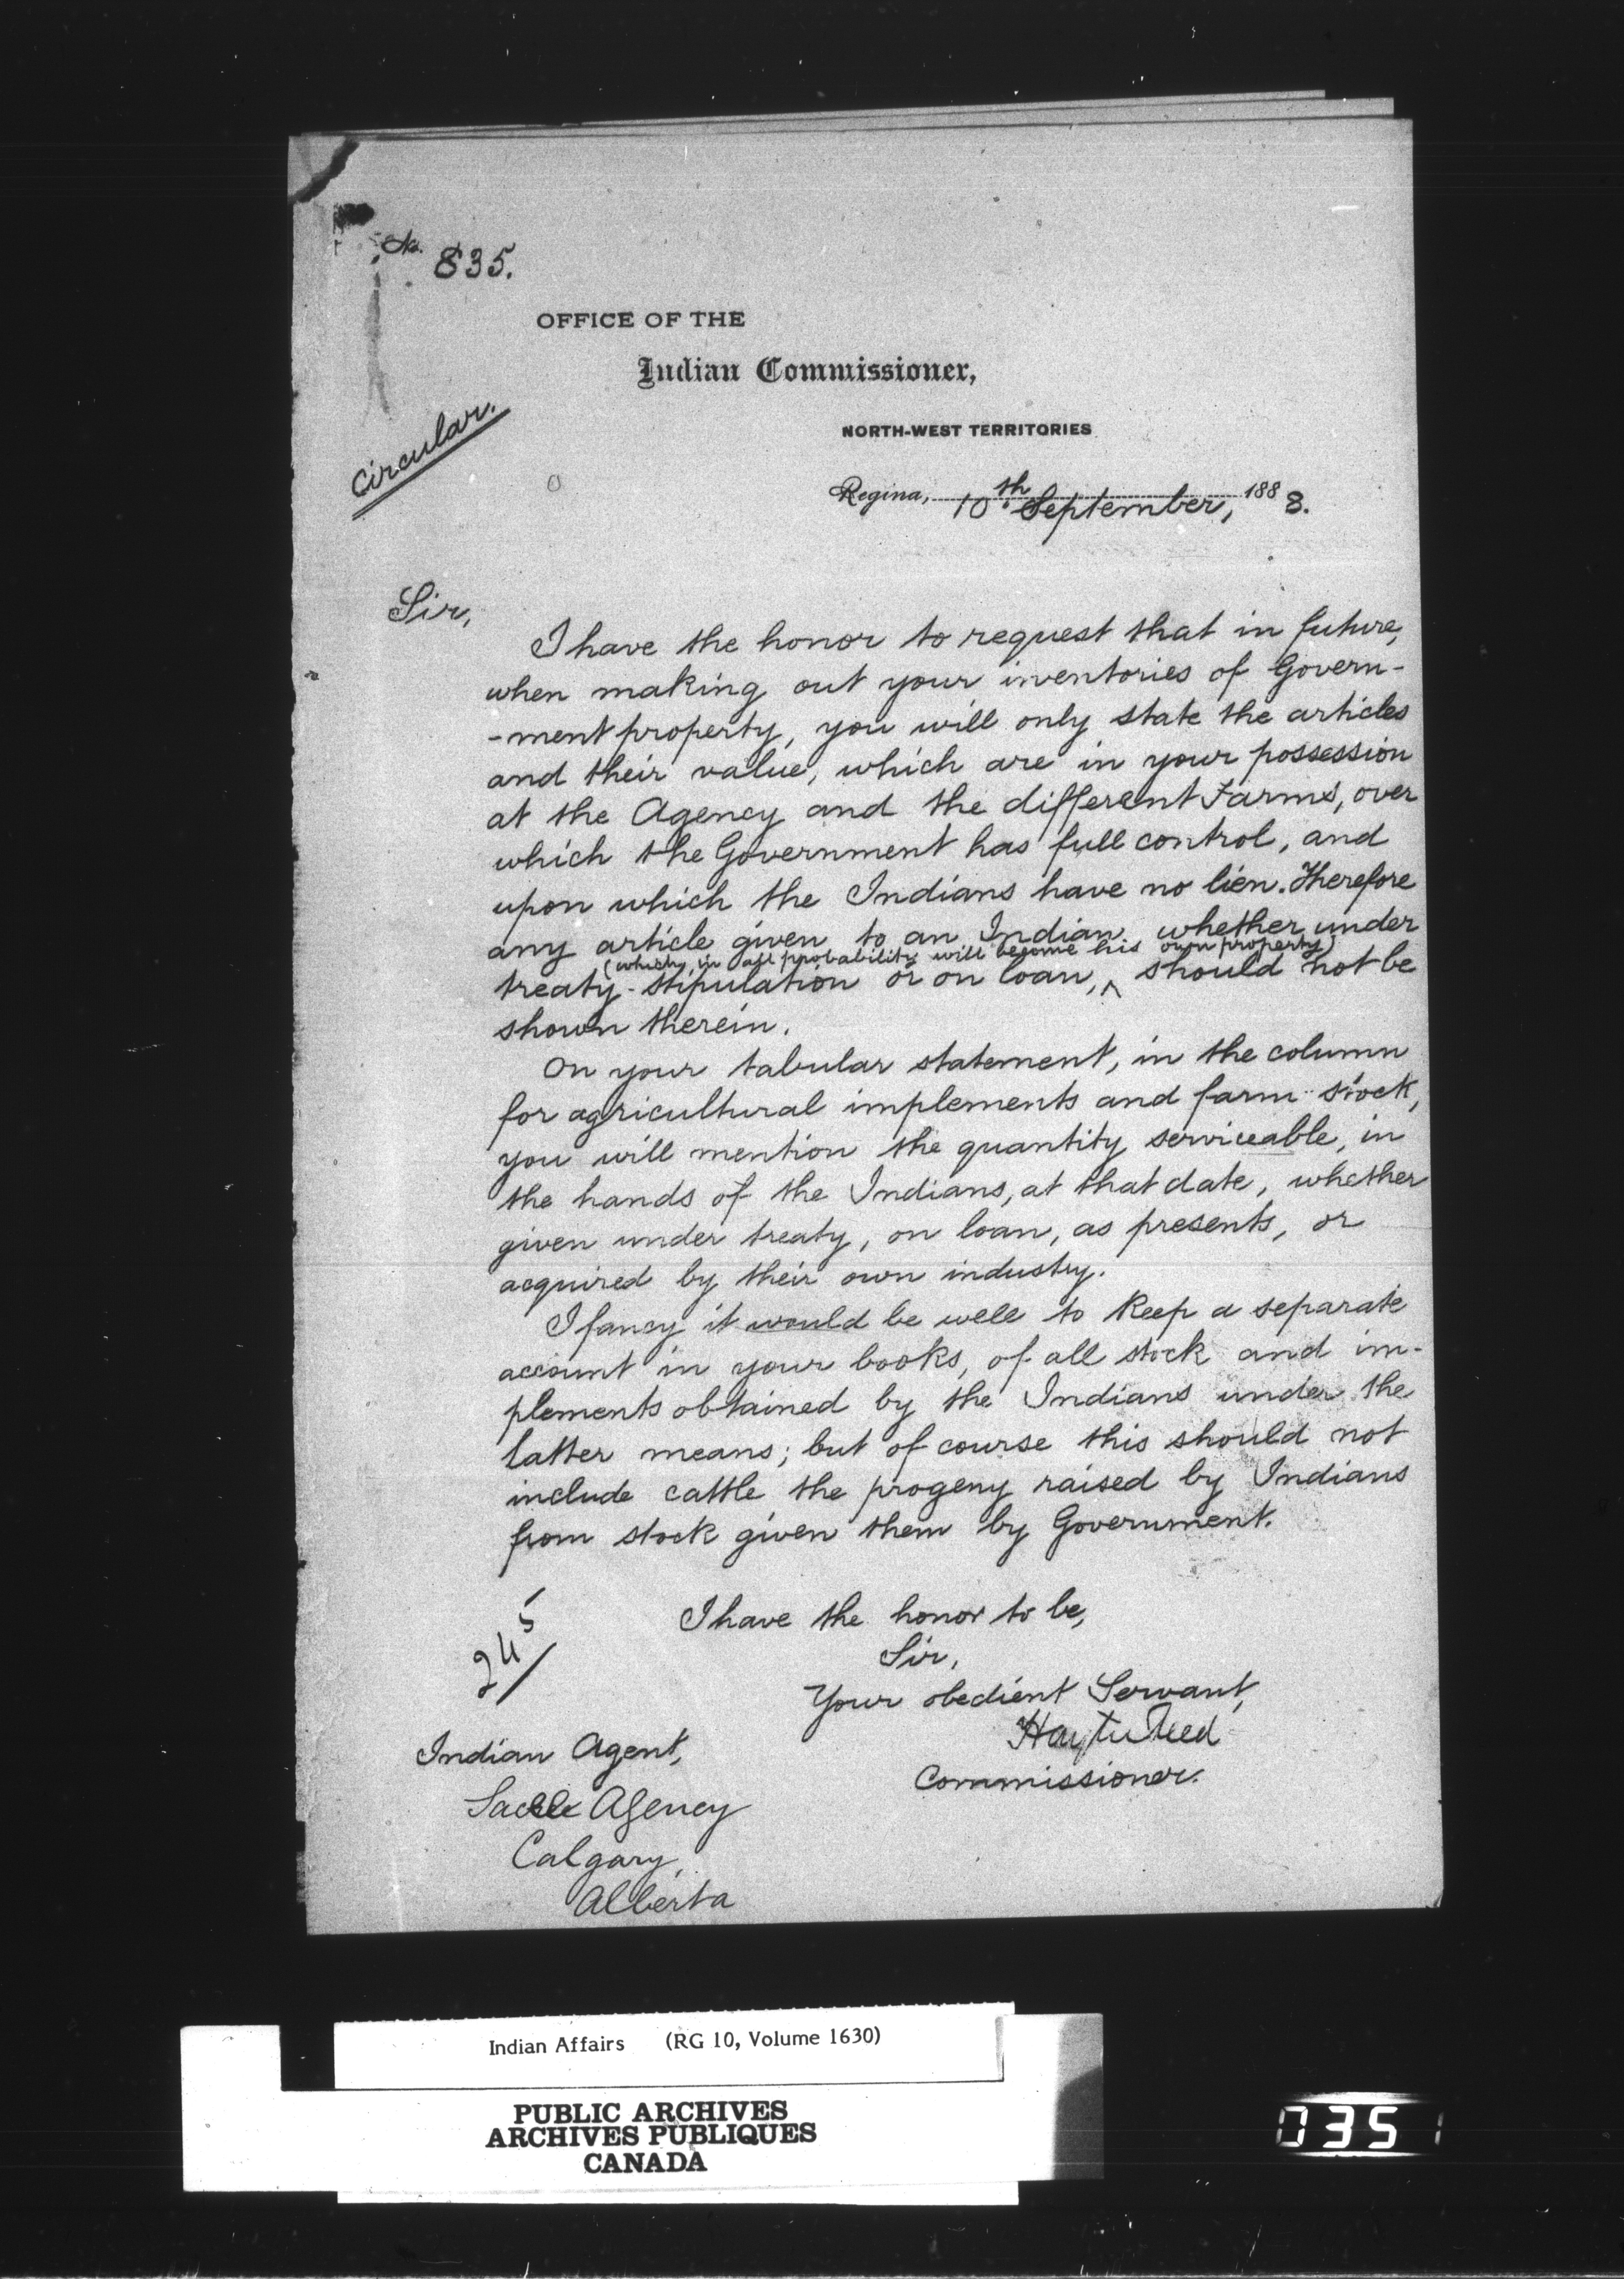 No. 835.
OFFICE OF THE
Indian Commissioner,
NORTH-WEST TERRITORIES
Circular.
Regina, 10th September, 1888.
Sir,
I have the honor to request that in future,
when making out your inventories of Govern-
-ment property, you will only state the articles
and their value, which are in your possession
at the Agency and the different Farms, over
which the Government has full control, and
upon which the Indians have no lien. Therefore
any article given to an Indian, whether under
(which, in all probability will become his own property)
treaty-stipulation or on loan, ^ should not be
shown therein.
On your tabular statement, in the column
for agricultural implements and farm stock,
you will mention the quantity serviceable, in
the hands of the Indians, at that date, whether
given under treaty, on loan, as presents, or
acquired by their own industry.
I fancy it would be well to keep a separate
account in your books, of all stock and im-
plements obtained by the Indians under the
latter means; but of course this should not
include cattle the progeny raised by Indians
from stock given them by Government.
I have the honor to be,
Sir,
Your obedient Servant,
Hayter Reed
Commissioner.
245
Indian Agent,
Agency
Calgary,
Alberta
Indian Affairs (RG 10, Volume 1630)
PUBLIC ARCHIVES
ARCHIVES PUBLIQUES
CANADA
0351